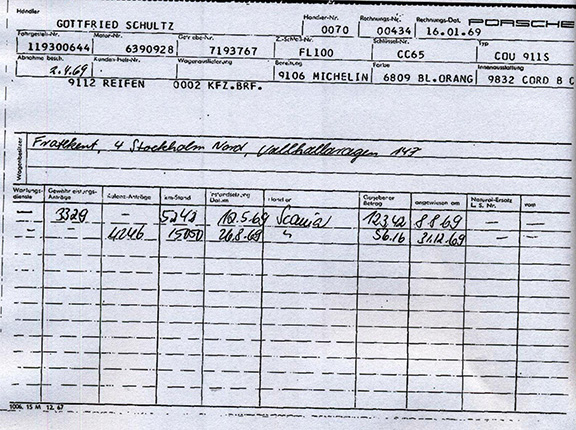 Händler
GOTTFRIED SCHULTZ
Händler-Nr. Rechnungs-Nr. Rechnungs-Dat. PORSCHE
0070 00434 16.01.69
Fahrgestell-Nr. Motor-Nr. Getriebe-Nr. Z.-Schl.-Nr. Schlüssel-Nr. Typ
119300644 6390928 7193767 FL100 CC65 COU 911S
Abnahme besch. Kunden-Heft-Nr. Wagenauslieferung Bereifung Farbe Innenausstattung
2.4.69 9106 MICHELIN 6809 BL.ORANG 9832 CORD 8 C
9112 REIFEN 0002 KFZ.BRF.
Wagenbesitzer
4 Stockholm Nord, 143
Wartungs-dienste Gewährleistungs-Anträge Kulanz-Anträge km-Stand Instandsetzung Datum Händler Gegebener Betrag angewiesen am Natural-Ersatz L. S. Nr. vom
— 3329 — 5242 12.5.69 Scania 123,42 8.8.69 — —
— 4246 15050 26.8.69 " 56.16 31.12.69 — —
1006. 15 M 12. 67